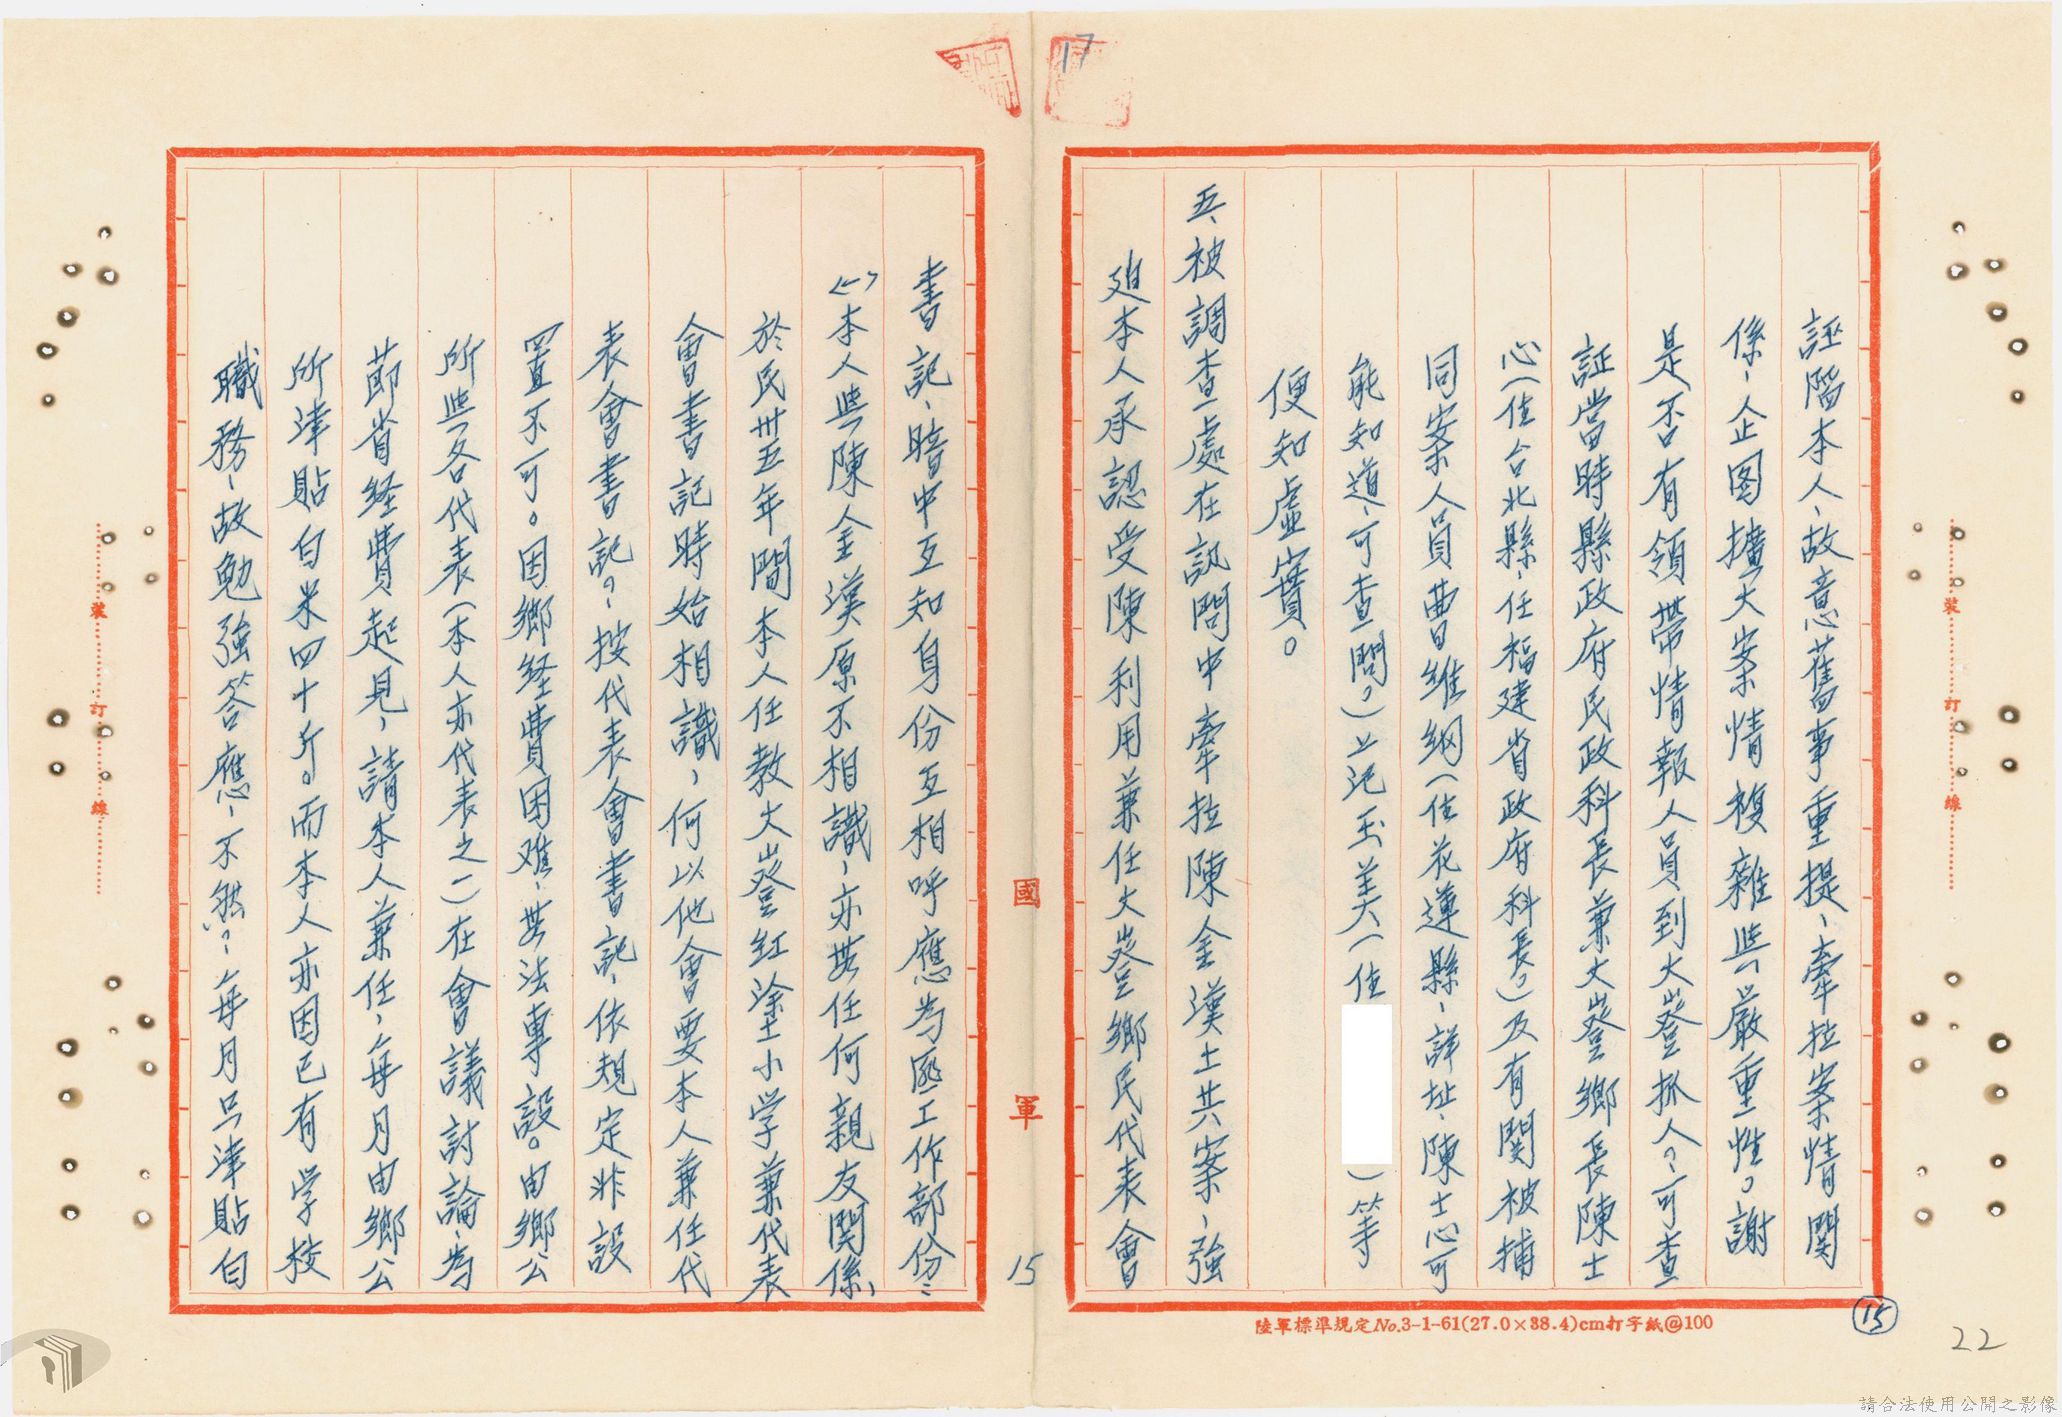 17
誣陷本人、故意舊事重提、牽拉案情関
係、企图擴大案情複雜与嚴重性。謝
是否有領帶情報人員到大嶝抓人？可查
証當時縣政府民政科長兼大嶝鄉長陳士
心（住台北縣、任福建省政府科長。）及有関被捕
同案人員曹維綱（住花蓮縣、詳址、陳士心可
能知道、可查問。）上記玉美（住　　　）等
便知虛實。
五、被調查處在訊問中牽拉陳金漢土共案、強
迫本人承認受陳利用兼任大嶝鄉民代表會
陸軍標準規定No.3-1-61(27.0×38.4)cm打字紙@100
15
22
國軍
15
書記、暗中互知身份互相呼應為匪工作部份：
㈠本人与陳金漢原不相識、亦無任何親友関係
於民卅五年間本人任教大嶝紅塗小学兼代表
會書記時始相識，何以他會要本人兼任代
表會書記？按代表會書記、依規定非設
置不可。因鄉経費困难、無法專設。由鄉公
所与各代表（本人亦代表之一）在會議討論、為
節省経費起見，請本人兼任，每月由鄉公
所津貼白米四十斤。而本人亦因已有学校
職務、故勉強答應、不然？每月只津貼白
裝訂線
裝訂線
請合法使用公開之影像